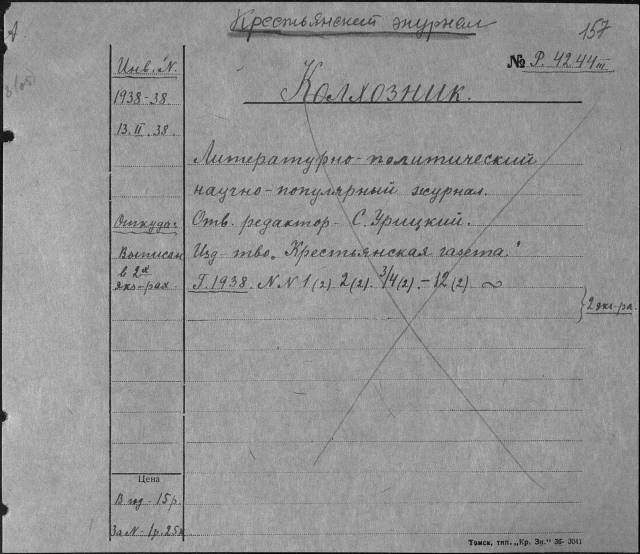 Крестьянский журнал
157
№ Р. 4244 III
Инв. N.
1938-38
13.II.38.
Колхозник.
Литературно-политический
научно-популярный журнал.
Откуда:
Отв. редактор - С. Урицкий.
Выписан
в 2х
экз-рах.
Изд-тво „Крестьянская газета."
Г. 1938. N N 1 (2) 2 (2). 3/4 (2) - 12 (2).
2 экз-ра.
Цена
В год - 15 р.
За N - 1 р. 25 к
Томск, тип. „Кр. Зн." 36- 3041